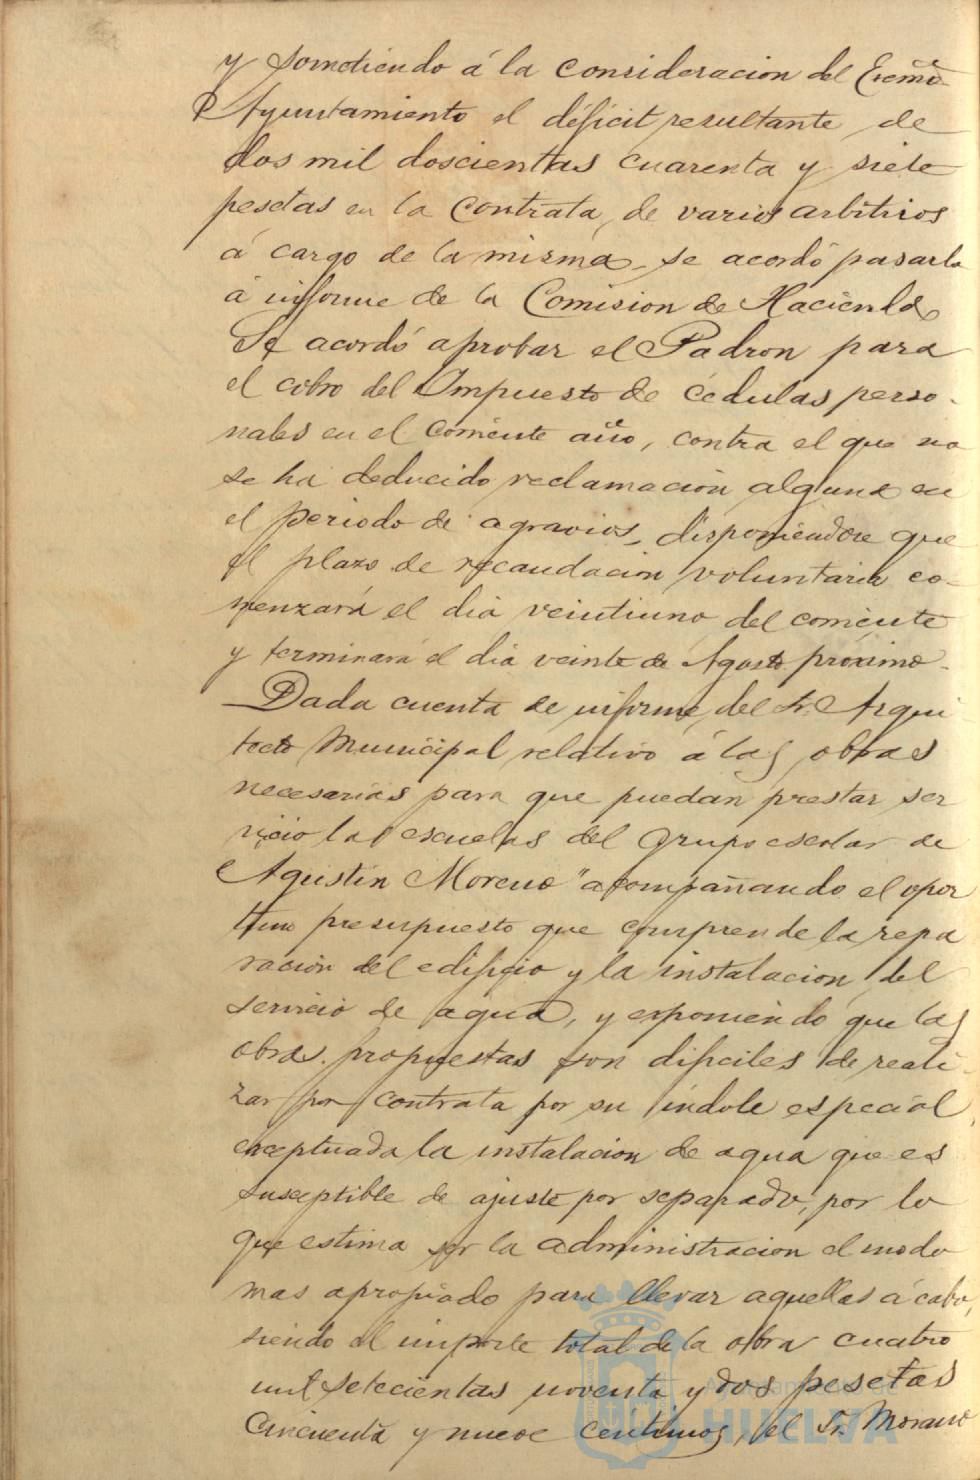 y sometiendo á la consideracion del Excmo.
Ayuntamiento el déficit resultante de
dos mil doscientas cuarenta y siete
pesetas en la contrata de varios arbitrios
á cargo de la misma, se acordó pasarla
á informe de la Comision de Hacienda.
Se acordó aprobar el Padron para
el cobro del Impuesto de cédulas perso-
nales en el corriente año, contra el que no
se ha deducido reclamación alguna en
el período de agravios, disponiendose que
el plazo de recaudacion voluntaria co-
menzará el dia veintiuno del corriente
y terminará el dia veinte de Agosto próximo.
Dada cuenta de informe del Sr. Arqui-
tecto Municipal relativo á las obras
necesarias para que puedan prestar ser
vicio las escuelas del Grupo escolar de
"Agustin Moreno" acompañando el opor
tuno presupuesto que comprende la repa
racion del edificio y la instalacion del
servicio de agua, y exponiendo que las
obras propuestas son dificiles de reali-
zar por contrata por su índole especial,
exceptuada la instalacion de agua que es
susceptible de ajuste por separado, por lo
que estima ser la administracion el modo
mas apropiado para llevar aquellas á cabo,
siendo el importe total de la obra cuatro
mil setecientas noventa y dos pesetas
cincuenta y nueve centimos, el Sr. Morano
Ayuntamiento de
HUELVA